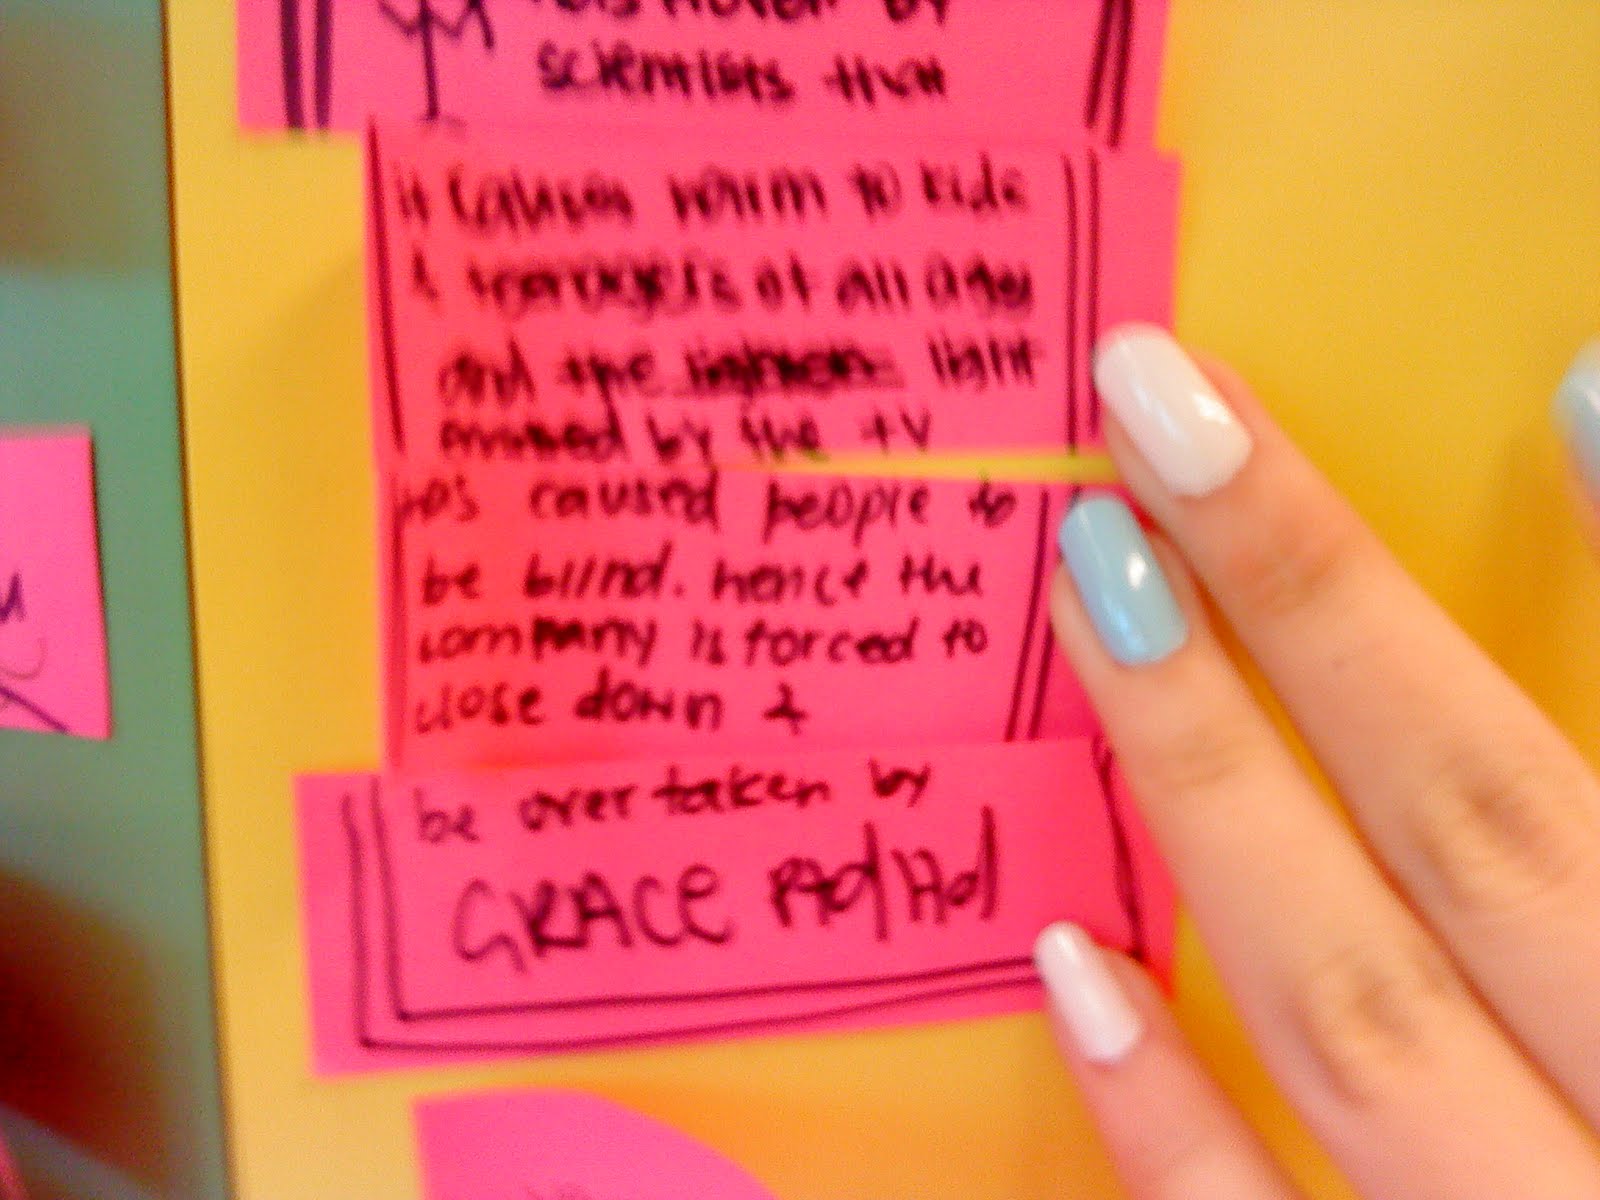 by
scientists that
it causes harm to kids
& teenagers of all ages
and the light
emitted by the TV
has caused people to
be blind. hence the
company is forced to
close down &
be overtaken by
GRACE